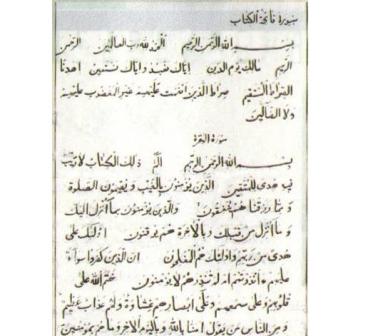 سورة فاتحة الكتاب
بسم الله الرحمن الرحيم الحمد لله رب العالمين الرحمن
الرحيم مالك يوم الدين اياك نعبد واياك نستعين اهدنا
الصراط المستقيم صراط الذين انعمت عليهم غير المغضوب عليهم
ولا الضالين
سورة البقرة
بسم الله الرحمن الرحيم الم ذلك الكتاب لا ريب
فيه هدى للمتقين الذين يؤمنون بالغيب ويقيمون الصلوة
ومما رزقناهم ينفقون والذين يؤمنون بما انزل اليك
وما انزل من قبلك وبالاخرة هم يوقنون اولئك على
هدى من ربهم واولئك هم المفلحون ان الذين كفروا سواء
عليهم ءانذرتهم ام لم تنذرهم لا يؤمنون ختم الله على
قلوبهم وعلى سمعهم وعلى ابصارهم غشاوة ولهم عذاب عظيم
ومن الناس من يقول امنا بالله وباليوم الاخر وما هم بمؤمنين